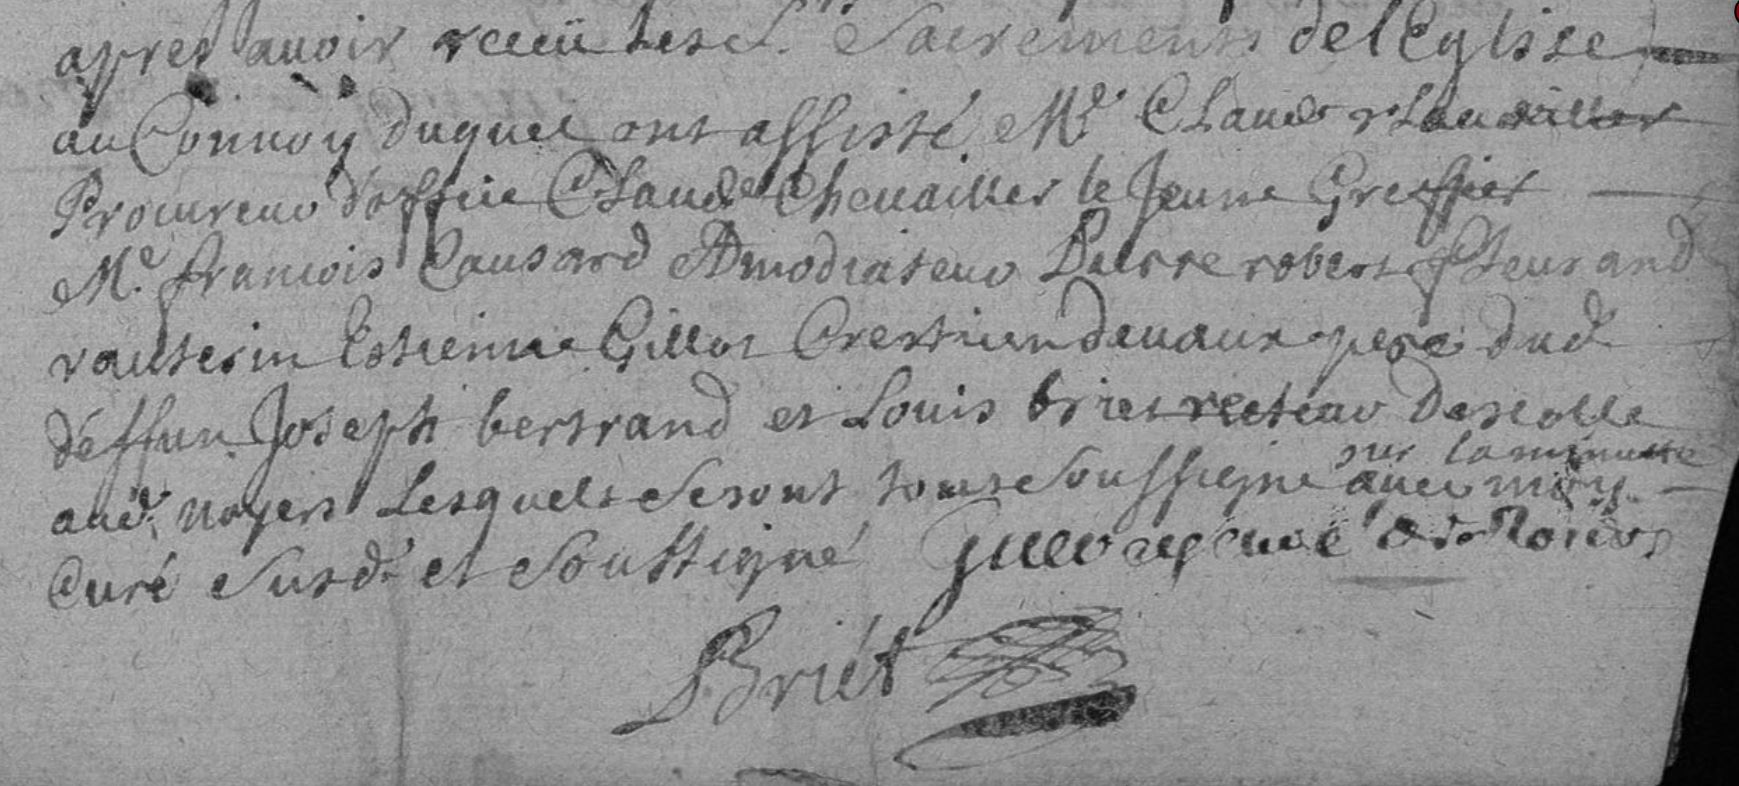 apres avoir receu les s. Sacrements de l'Eglise
au Convoy duquel ont assisté Me Claude
Procureur d'office Claude Chevailler le Jeune Greffier
Me francois Causard Admodiateur Pierre robert fleurand
vauterin Estienne Gillot Crestien devaux pere dud.
deffun Joseph bertrand et Louis briet recteur Descolle
aud. noyers Lesquels se sont tous soussigne sur la minutte avec moy
Curé susd. et soussigné curé de
Briét